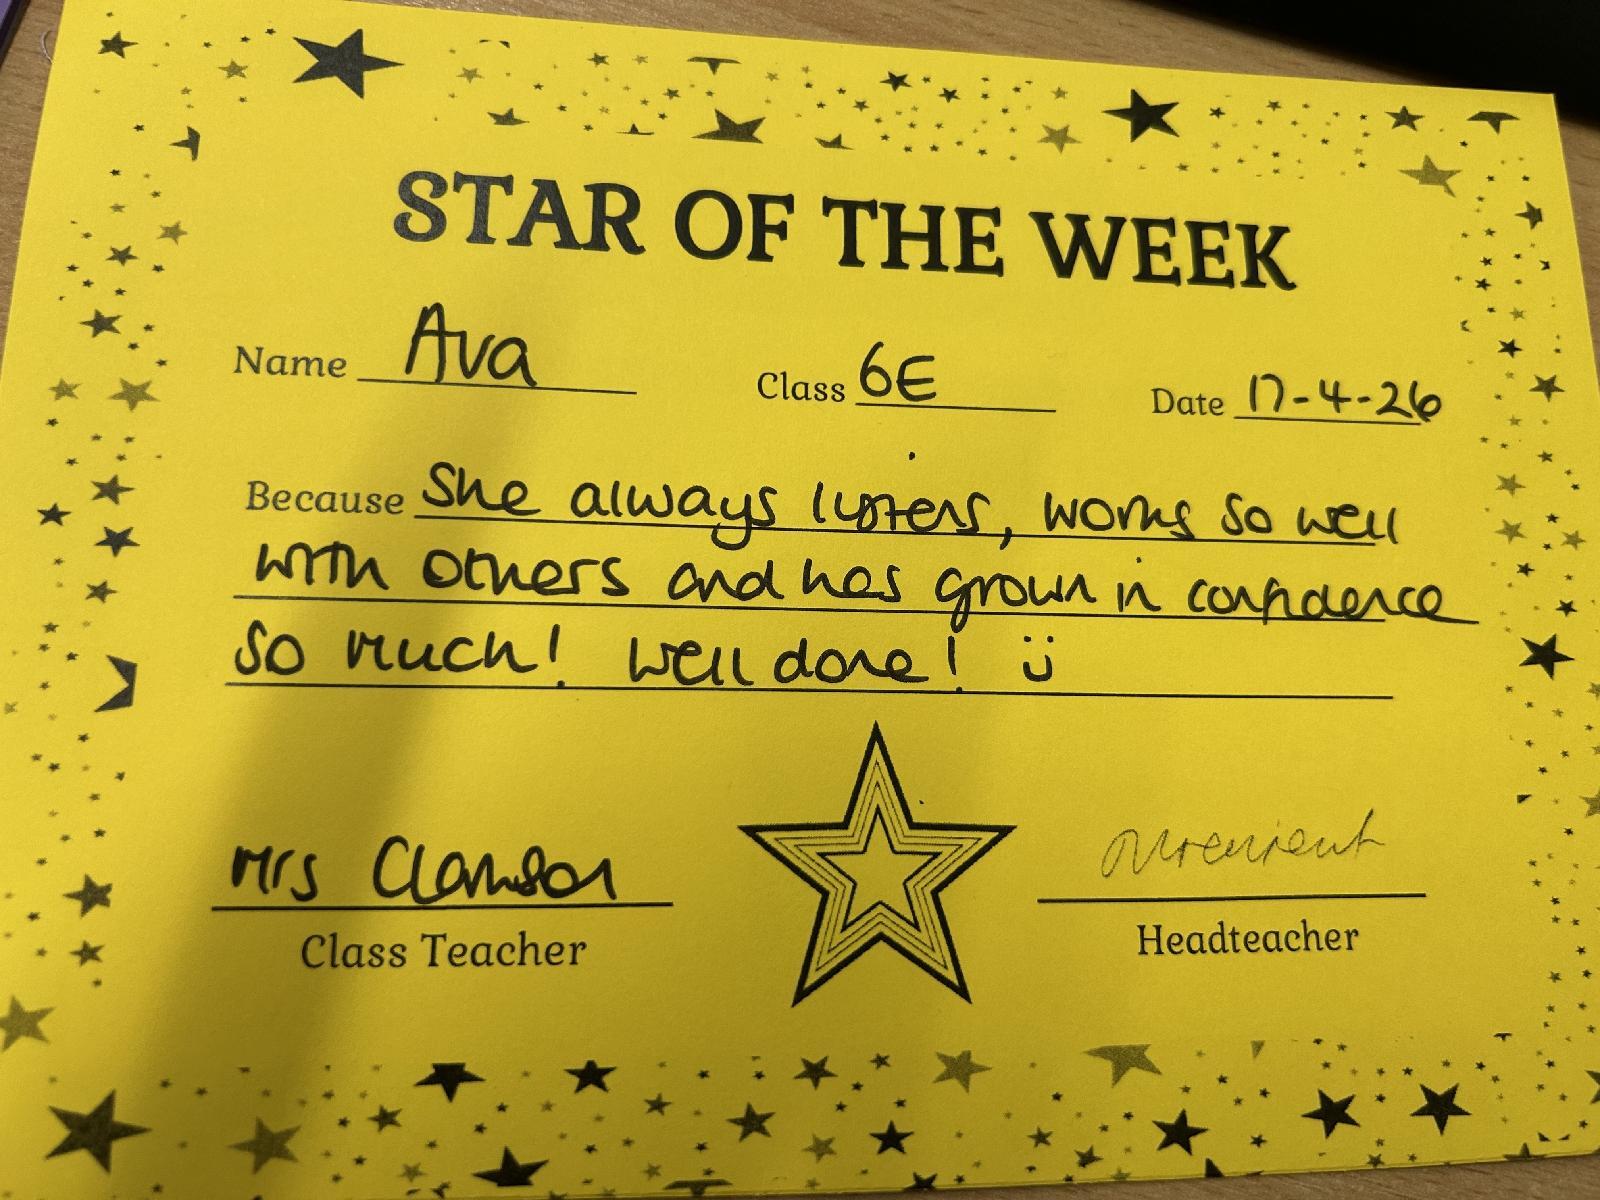 STAR OF THE WEEK
Name Ava Class 6E Date 17-4-26
Because She always listens, works so well
with others and has grown in confidence
so much! Well done! :)
Mrs
Class Teacher Headteacher